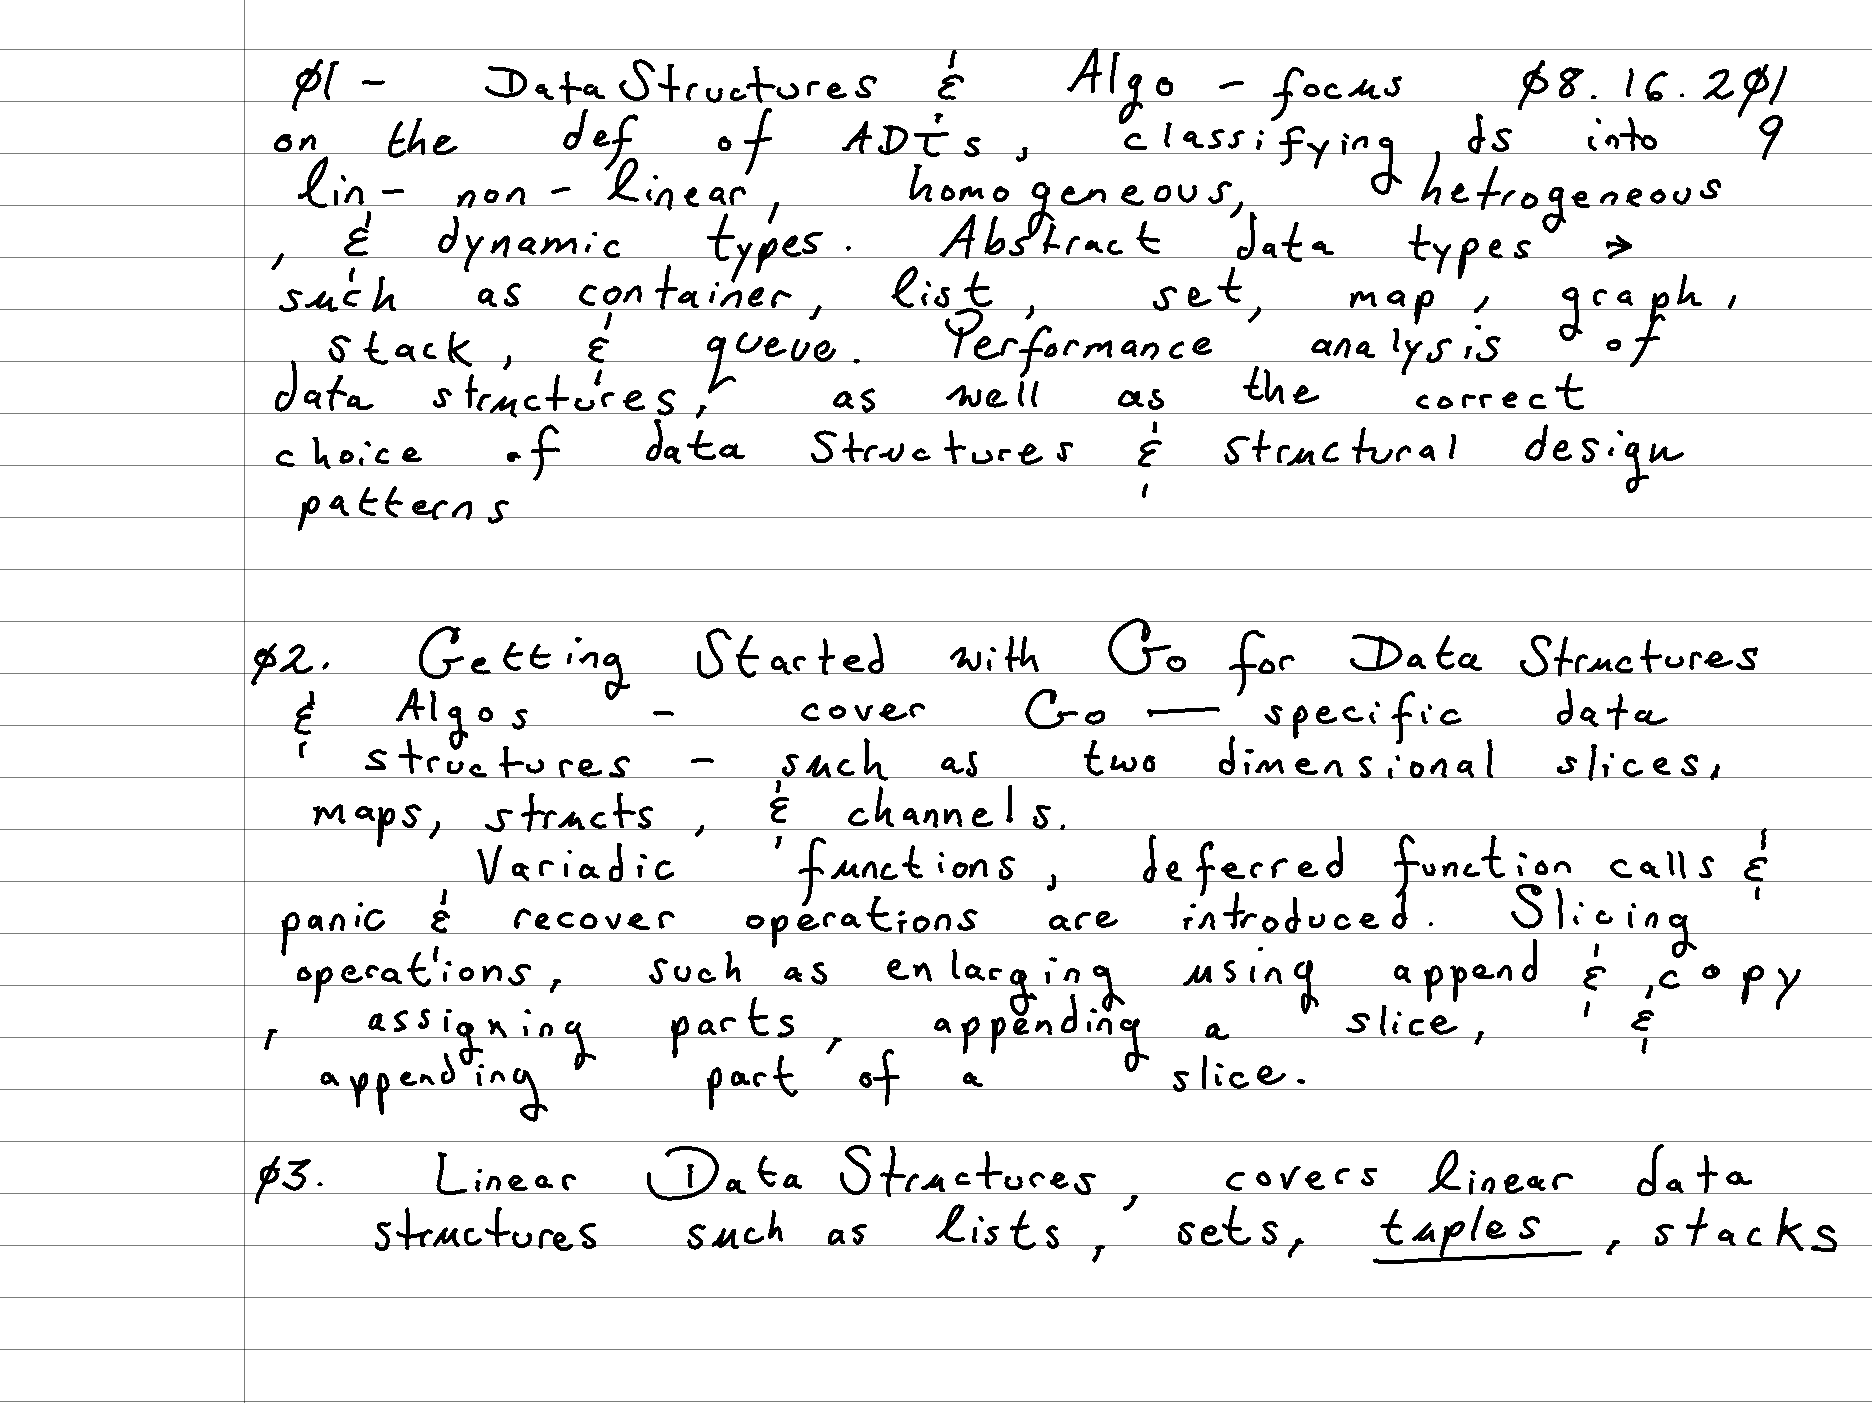 Ø1 - Data Structures & Algo - focus Ø8.16.2Ø1
on the def of ADTs, classifying ds into 9
lin- non-linear, homogeneous, hetrogeneous
, & dynamic types. Abstract data types →
such as container, list, set, map, graph,
stack, & queue. Performance analysis of
data structures, as well as the correct
choice of data Structures & structural design
patterns
Ø2. Getting Started with Go for Data Structures
& Algos - cover Go — specific data
structures - such as two dimensional slices,
maps, structs, & channels.
Variadic functions, deferred function calls &
panic & recover operations are introduced. Slicing
operations, such as enlarging using append & copy
, assigning parts, appending a slice, &
appending part of a slice.
Ø3. Linear Data Structures, covers linear data
structures such as lists, sets, tuples, stacks